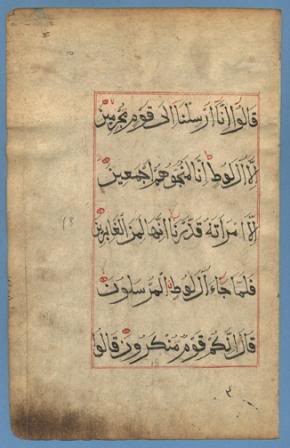 قَالُوا إِنَّا أُرْسِلْنَا إِلَى قَوْمٍ مُجْرِمِينَ
إِلَّا آلَ لُوطٍ إِنَّا لَمُنَجُّوهُمْ أَجْمَعِينَ
إِلَّا امْرَأَتَهُ قَدَّرْنَا إِنَّهَا لَمِنَ الْغَابِرِينَ
فَلَمَّا جَاءَ آلَ لُوطٍ الْمُرْسَلُونَ
قَالَ إِنَّكُمْ قَوْمٌ مُنْكَرُونَ قَالُوا